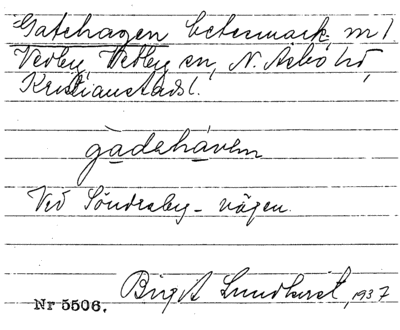 Gatehagen betesmark, m l
Vedby, Vedby sn, N. Åsbo hd,
Kristianstads l.
gàdehávem
Vid Söndraby-vägen.
Birgit Lundkvist, 1937
Nr 5506.